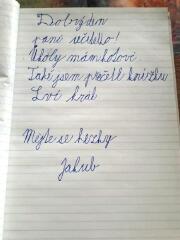 Dobrý den
paní učitelko!
Úkoly mám hotové.
Také jsem přečetl knížku
Lví král
Mějte se hezky
Jakub